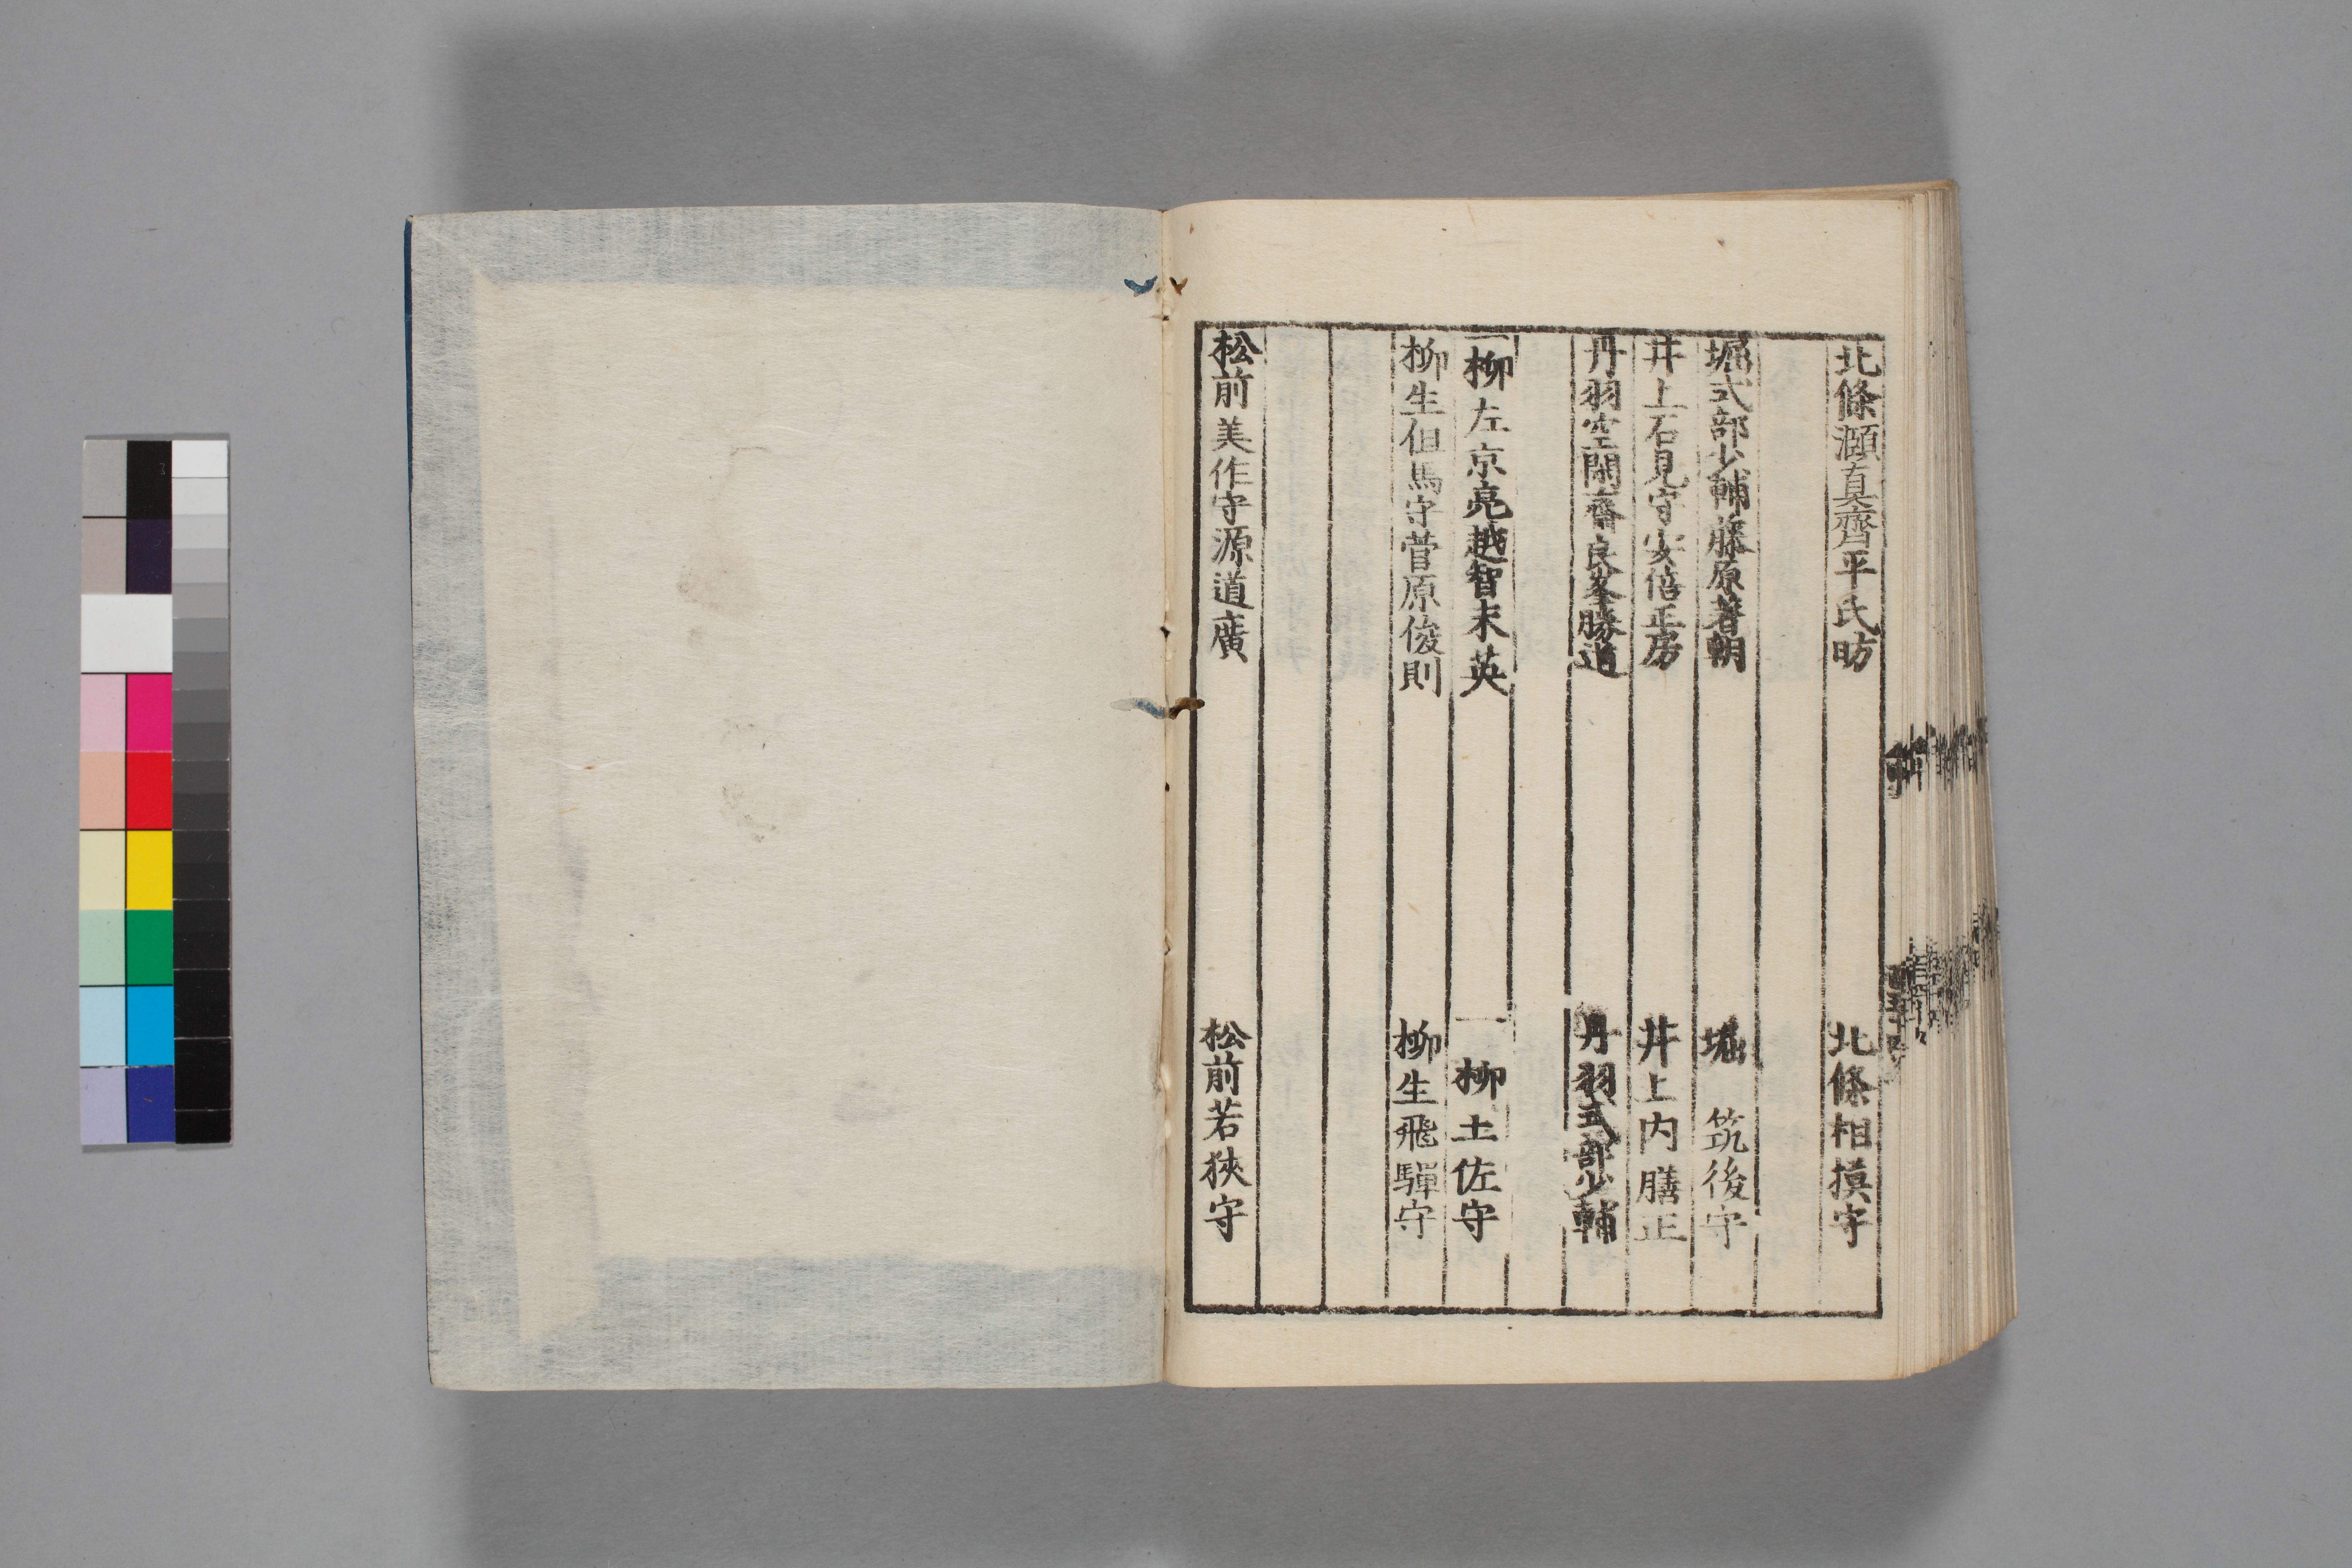 北條灝真齋平氏昉
北條相摸守
堀式部少輔藤原著朝
堀　筑後守
井上石見守安倍正房
井上内膳正
丹羽空閑齋良岑勝道
丹羽式部少輔
一柳左京亮越智末英
一柳土佐守
柳生但馬守菅原俊則
柳生飛騨守
松前美作守源道廣
松前若狹守